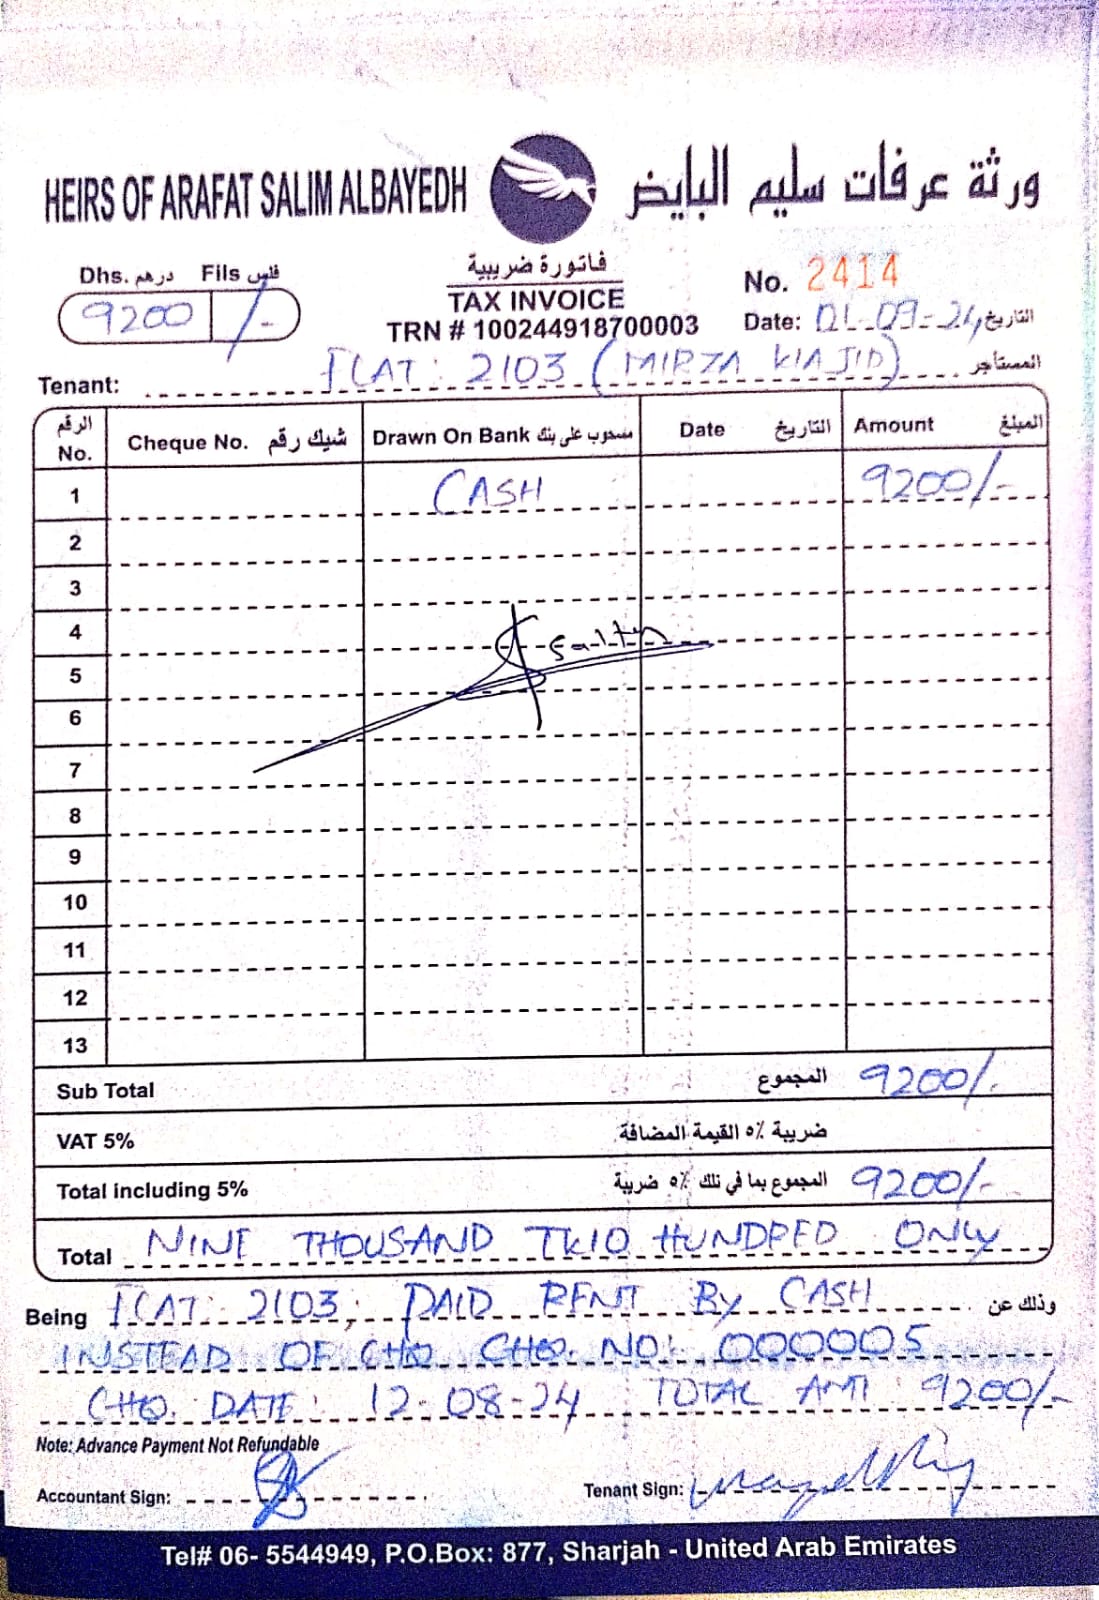 HEIRS OF ARAFAT SALIM ALBAYEDH
ورثة عرفات سليم البايض
Dhs. درهم Fils فلس
9200 /-
فاتورة ضريبية
TAX INVOICE
TRN # 100244918700003
No. 2414
Date: 01-09-24 التاريخ
Tenant: FLAT: 2103 (MIRZA WAJID) المستأجر
الرقم No. Cheque No. شيك رقم Drawn On Bank مسحوب على بنك Date التاريخ Amount المبلغ
1 CASH 9200/-
2
3
4
5
6
7
8
9
10
11
12
13
Sub Total المجموع 9200/-
VAT 5% ضريبة ٥٪ القيمة المضافة
Total including 5% المجموع بما في تلك ٥٪ ضريبة 9200/-
Total NINE THOUSAND TWO HUNDRED ONLY
Being FLAT: 2103, PAID RENT By CASH وذلك عن
INSTEAD OF CHQ. CHQ. NO: 000005
CHQ. DATE: 12-08-24 TOTAL AMT: 9200/-
Note: Advance Payment Not Refundable
Accountant Sign:
Tenant Sign:
Tel# 06- 5544949, P.O.Box: 877, Sharjah - United Arab Emirates